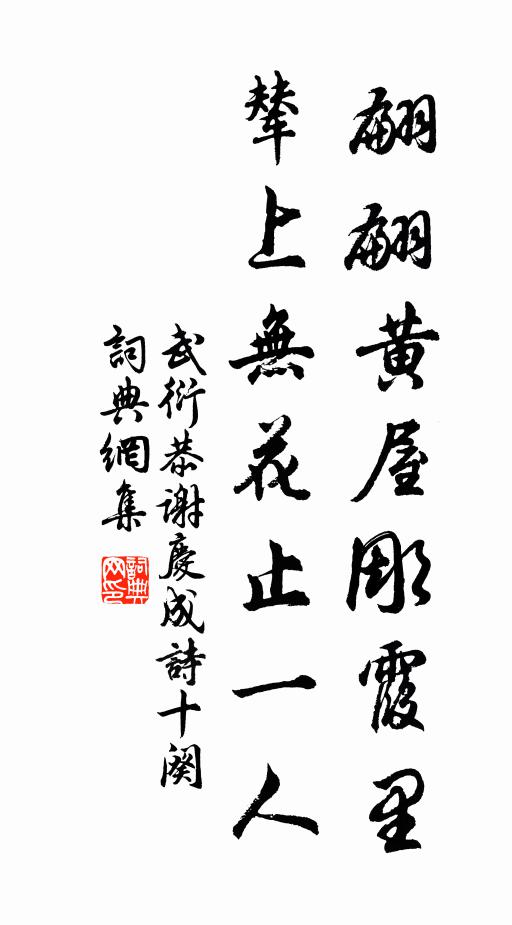 翩翩黄屋彫霞里
輦上無花止一人
武衍恭謝慶成詩十闋
詞典網集
詞典网印